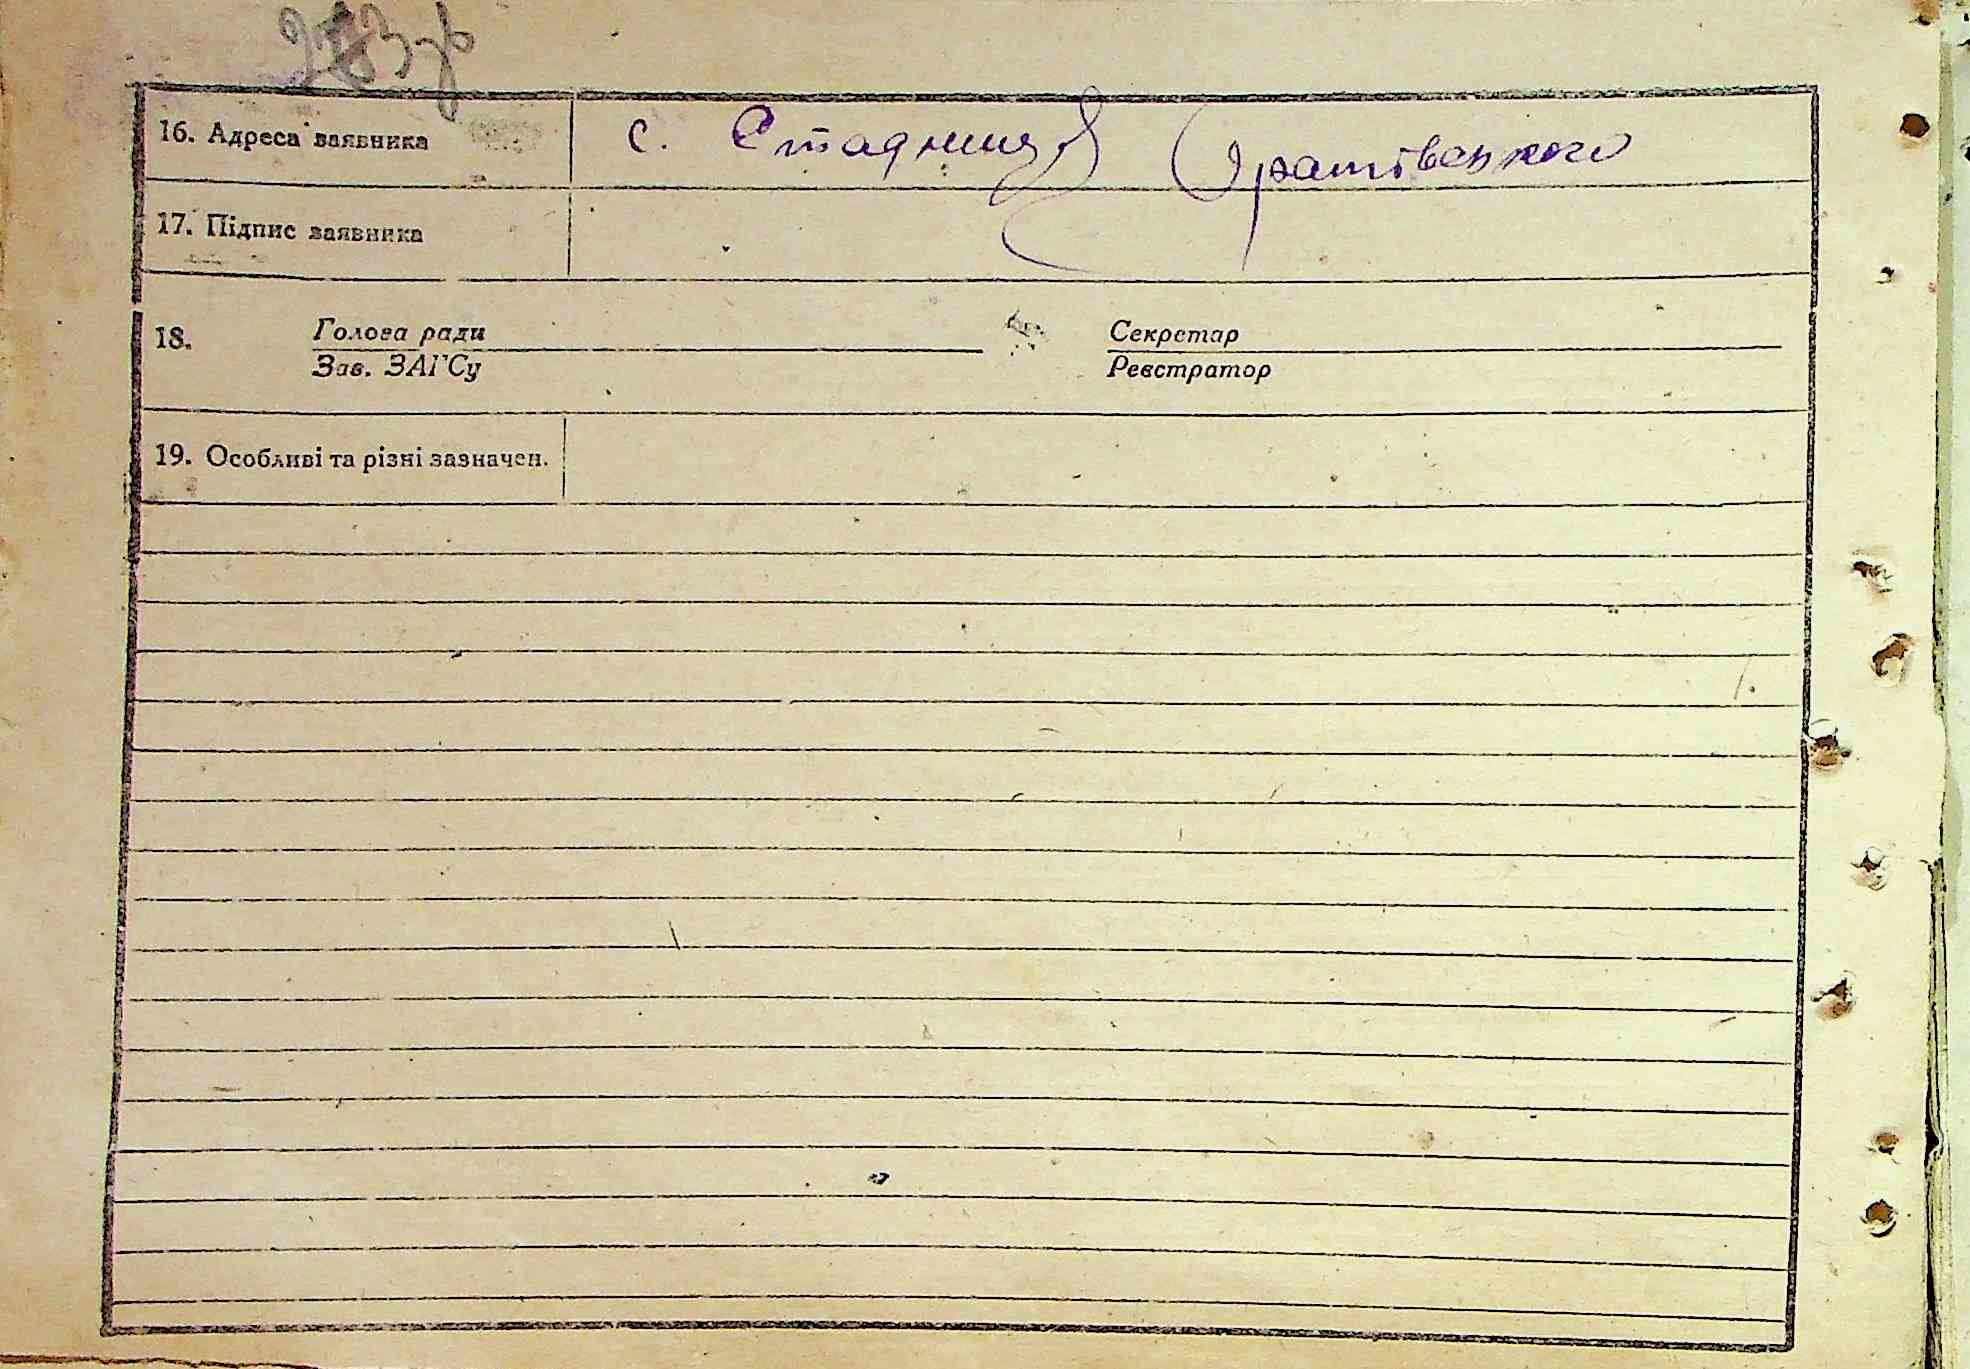 16. Адреса заявника с. Стадниця Оратівського
17. Підпис заявника
18. Голова ради Секретар
Зав. ЗАГСу Реєстратор
19. Особливі та різні зазначен.